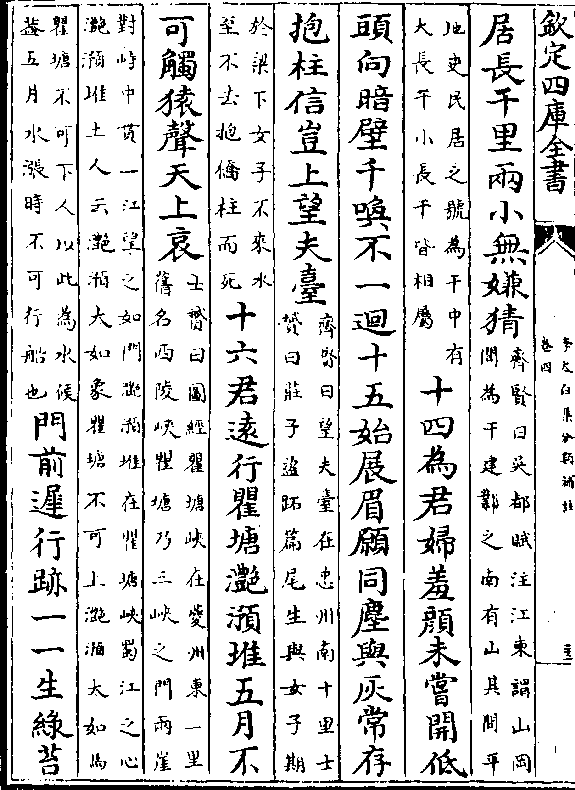 欽定四庫全書
李太白集分類補註
卷四
居長千里兩小無嫌猜
齊賢曰吳都賦注江東謂山岡
閒為干建鄴之南有山其間平
地吏民居之號為干中有
大長干小長干皆相屬
十四為君婦羞顔未嘗開低
頭向暗壁千喚不一迴十五始展眉願同塵與灰常存
抱柱信豈上望夫臺
齊賢曰望夫臺在忠州南十里士
贇曰莊子盜跖篇尾生與女子期
於梁下女子不來水
至不去抱橋柱而死
十六君遠行瞿塘灔澦堆五月不
可觸猿聲天上哀
士贇曰圖經瞿塘峽在夔州東一里
舊名西陵峽瞿塘乃三峽之門兩崖
對峙中貫一江望之如門灔澦堆在瞿塘峽蜀江之心
灔澦堆土人云灔澦大如象瞿塘不可上灔澦大如馬
瞿塘不可下人以此為水候
葢五月水漲時不可行船也
門前遲行跡一一生綠苔